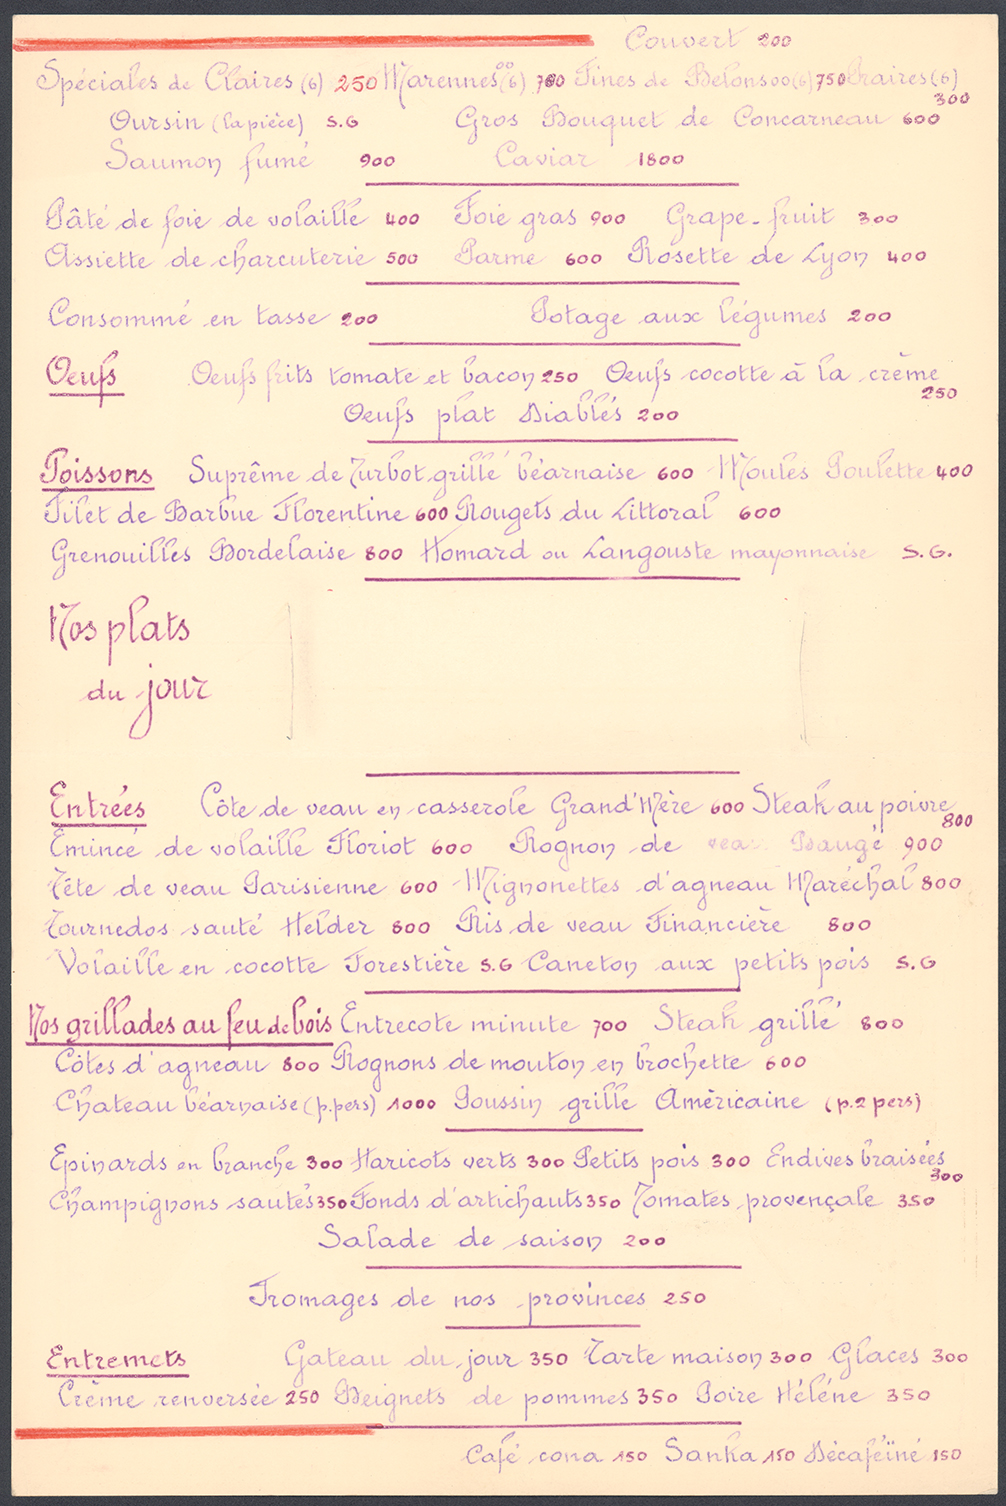 Couvert 200
Spéciales de Claires (6) 250 Marennes oo (6) 700 Fines de Belons oo (6) 750 Praires (6) 300
Oursin (la pièce) S.G Gros Bouquet de Concarneau 600
Saumon fumé 900 Caviar 1800
Pâté de foie de volaille 400 Foie gras 900 Grape-fruit 300
Assiette de charcuterie 500 Parme 600 Rosette de Lyon 400
Consommé en tasse 200 Potage aux légumes 200
Oeufs Oeufs frits tomate et bacon 250 Oeufs cocotte à la crème 250
Oeufs plat Diablés 200
Poissons Suprême de Turbot grillé béarnaise 600 Moules Poulette 400
Filet de Barbue Florentine 600 Rougets du Littoral 600
Grenouilles Bordelaise 800 Homard ou Langouste mayonnaise S.G.
Nos plats
du jour
Entrées Côte de veau en casserole Grand'Mère 600 Steak au poivre 800
Emincé de volaille Floriot 600 Rognon de veau Baugé 900
Tête de veau Parisienne 600 Mignonettes d'agneau Maréchal 800
Tournedos sauté Helder 800 Ris de veau Financière 800
Volaille en cocotte Forestière S.G Caneton aux petits pois S.G
Nos grillades au feu de bois Entrecote minute 700 Steak grillé 800
Côtes d'agneau 800 Rognons de mouton en brochette 600
Chateau béarnaise (p.pers) 1000 Poussin grille Amèricaine (p.2 pers)
Epinards en branche 300 Haricots verts 300 Petits pois 300 Endives braisées 300
Champignons sautés 350 Fonds d'artichauts 350 Tomates provençale 350
Salade de saison 200
Fromages de nos provinces 250
Entremets Gateau du jour 350 Tarte maison 300 Glaces 300
Crème renversée 250 Beignets de pommes 350 Poire Hélène 350
Café cona 150 Sanka 150 Décaféiné 150